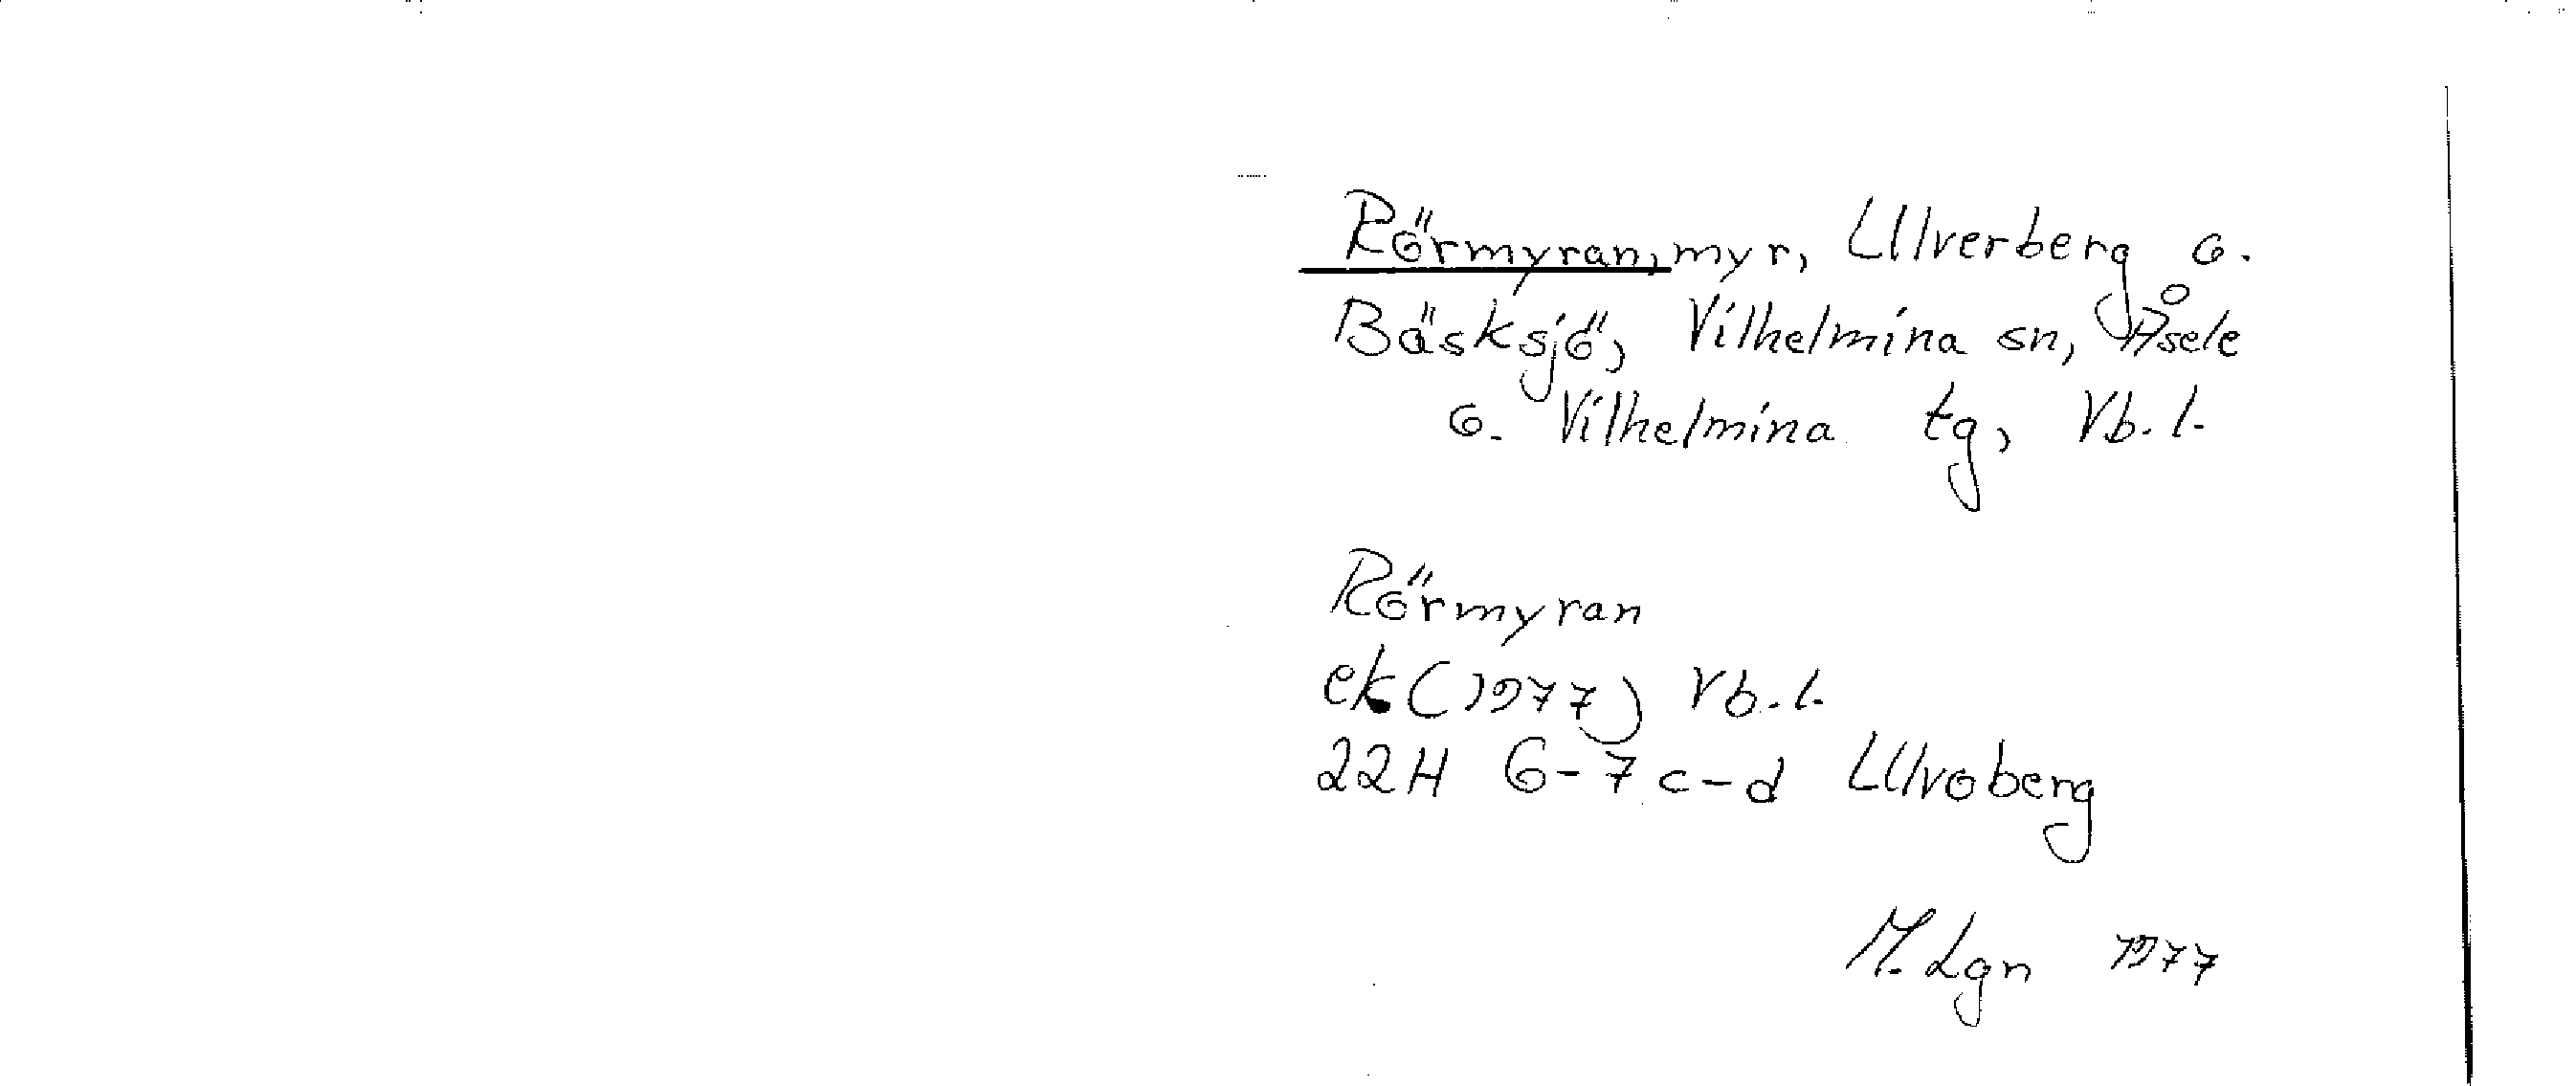 Rörmyran, myr, Ulverberg o.
Bäsksjö, Vilhelmina sn, Åsele
o. Vilhelmina tg, Vb. l.
Rörmyran
ek (1977) Vb. l.
22H 6-7 c-d Ulvoberg
M. Lgn 1977